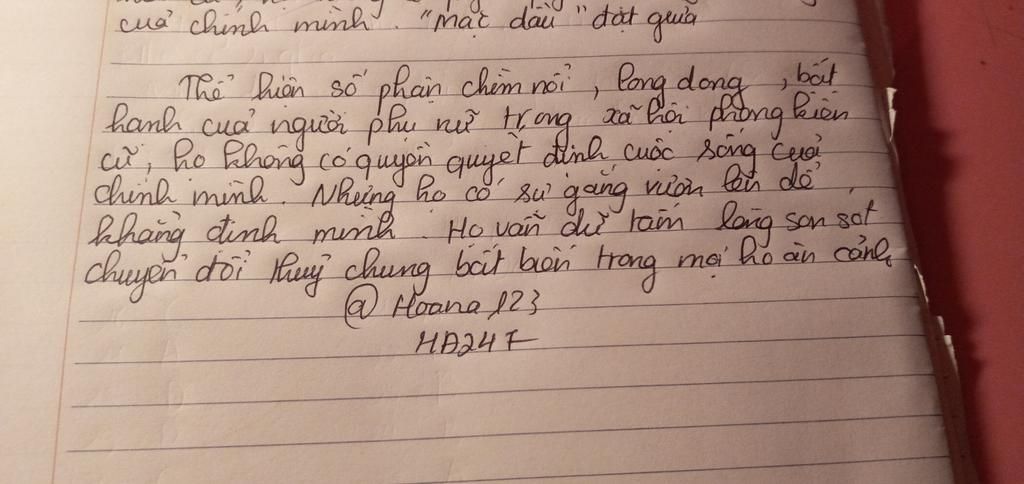 của chính mình. "mặc dầu" đặt giữa
Thể hiện số phận chìm nổi, long dong, bất
hạnh của người phụ nữ trong xã hội phong kiến
cũ, họ không có quyền quyết định cuộc sống của
chính mình. Nhưng họ có sự gắng vươn lên để
khẳng định mình. Họ vẫn dữ tấm lòng son sắt
chuyển đổi thuỷ chung bất biến trong mọi hoàn cảnh
@Hoana123
HA24F